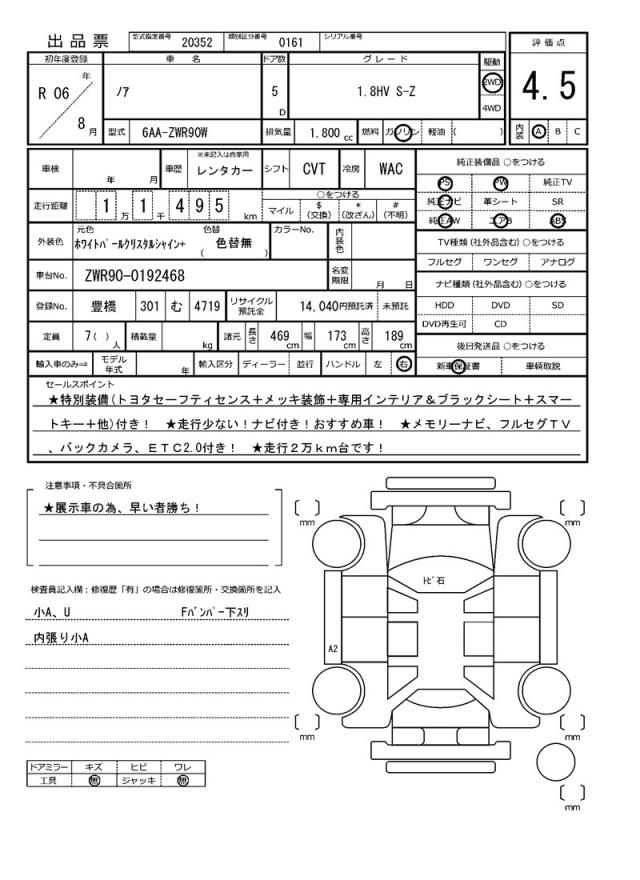 出品票 型式指定番号 20352 類別区分番号 0161 シリアル番号
初年度登録 車名 ドア数 グレード 駆動 評価点
R 06 年 8 月 ノア 5 D 1.8HV S-Z 2WD 4WD 4.5
型式 6AA-ZWR90W 排気量 1.800 cc 燃料 ガソリン 軽油 ( ) 内装 A B C
車検 年 月 車歴 ※未記入は自家用 レンタカー シフト CVT 冷房 WAC 純正装備品 ○をつける
PS PW 純正TV
走行距離 1 万 1 千 4 9 5 km ○をつける マイル $ (交換) * (改ざん) # (不明) 純正ナビ 革シート SR
純正AW エアB ABS
外装色 元色 ホワイトパールクリスタルシャイン+ 色替 ( 色替無 ) カラーNo. 内装色 TV種類 (社外品含む) ○をつける
フルセグ ワンセグ アナログ
車台No. ZWR90-0192468 名変期限 月 日 ナビ種類 (社外品含む) ○をつける
登録No. 豊橋 301 む 4719 リサイクル預託金 14,040円預託済 未預託 HDD DVD SD
DVD再生可 CD
定員 7( ) 人 積載量 kg 諸元 長さ 469 cm 幅 173 cm 高さ 189 cm 後日発送品 ○をつける
輸入車のみ⇒ モデル年式 年 輸入区分 ディーラー 並行 ハンドル 左 右 新車保証書 車輌取説
セールスポイント
★特別装備(トヨタセーフティセンス+メッキ装飾+専用インテリア&ブラックシート+スマー
トキー+他)付き! ★走行少ない!ナビ付き!おすすめ車! ★メモリーナビ、フルセグTV
、バックカメラ、ETC2.0付き! ★走行2万km台です!
注意事項・不具合箇所
★展示車の為、早い者勝ち!
mm
mm
トビ石
検査員記入欄:修復歴「有」の場合は修復箇所・交換箇所を記入
小A、U Fバンパー下スリ
内張り小A
A2
mm
mm
ドアミラー キズ ヒビ ワレ
工具 無 ジャッキ 無
mm